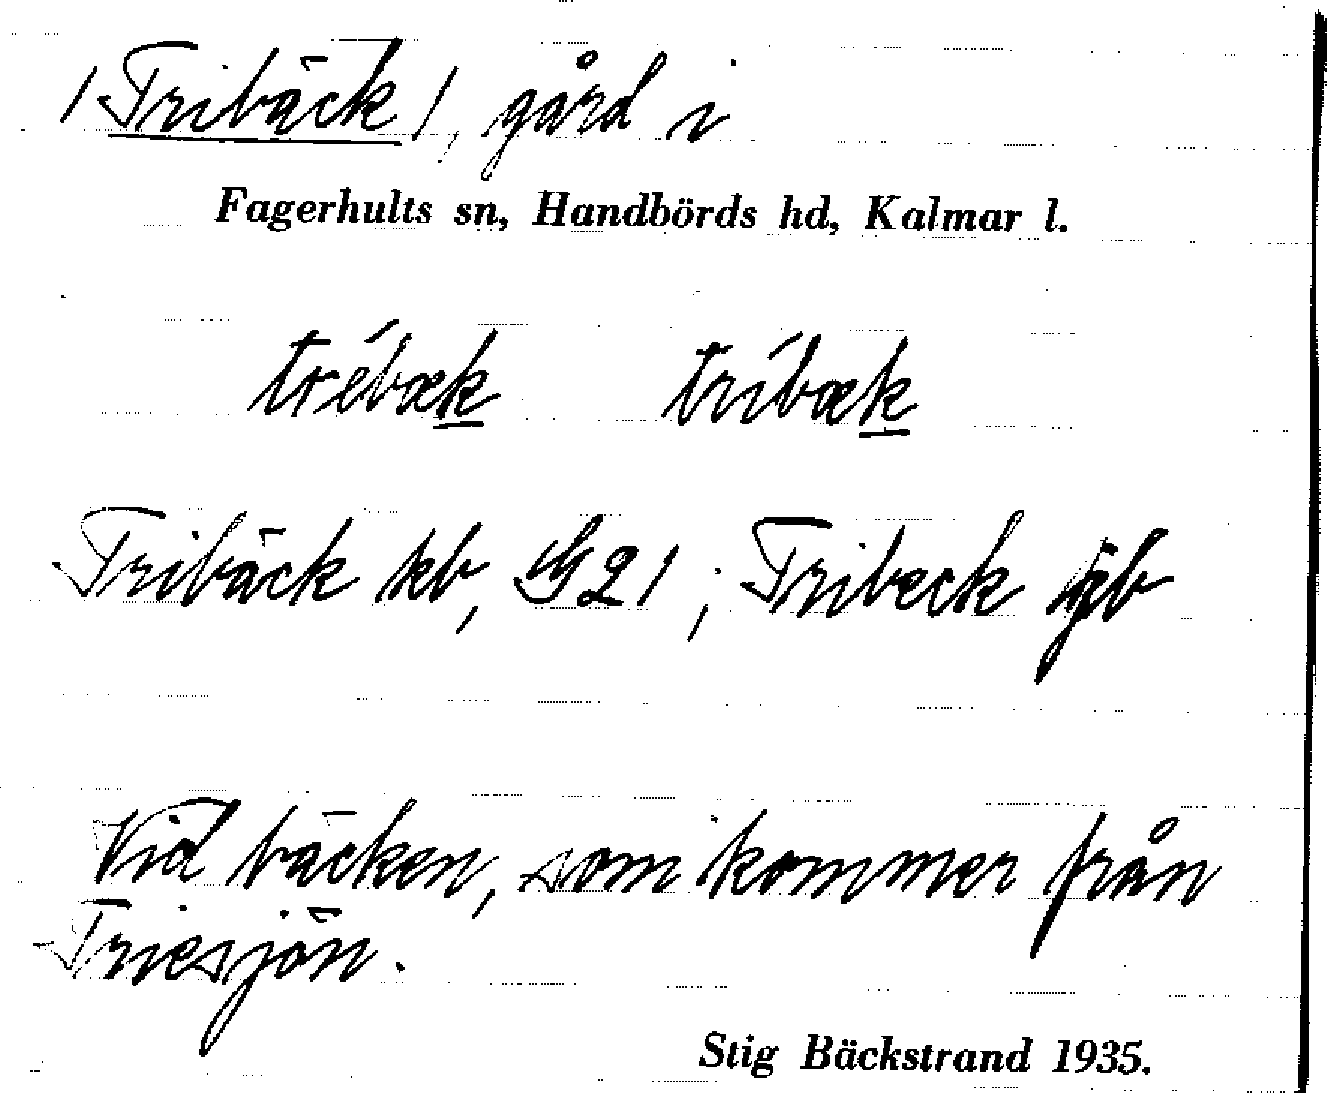 /Tribäck/, gård i
Fagerhults sn, Handbörds hd, Kalmar l.
trébæk tríbæk
Tribäck kb, G21; Tribeck jb
Vid bäcken, som kommer från
Triesjön.
Stig Bäckstrand 1935.